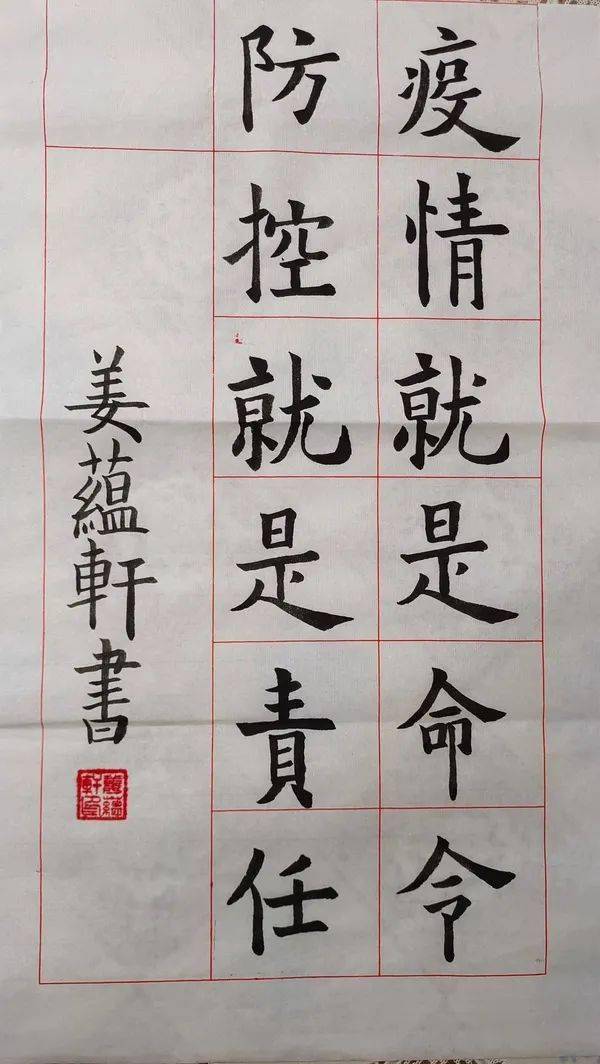 疫情就是命令
防控就是責任
姜蘊軒書